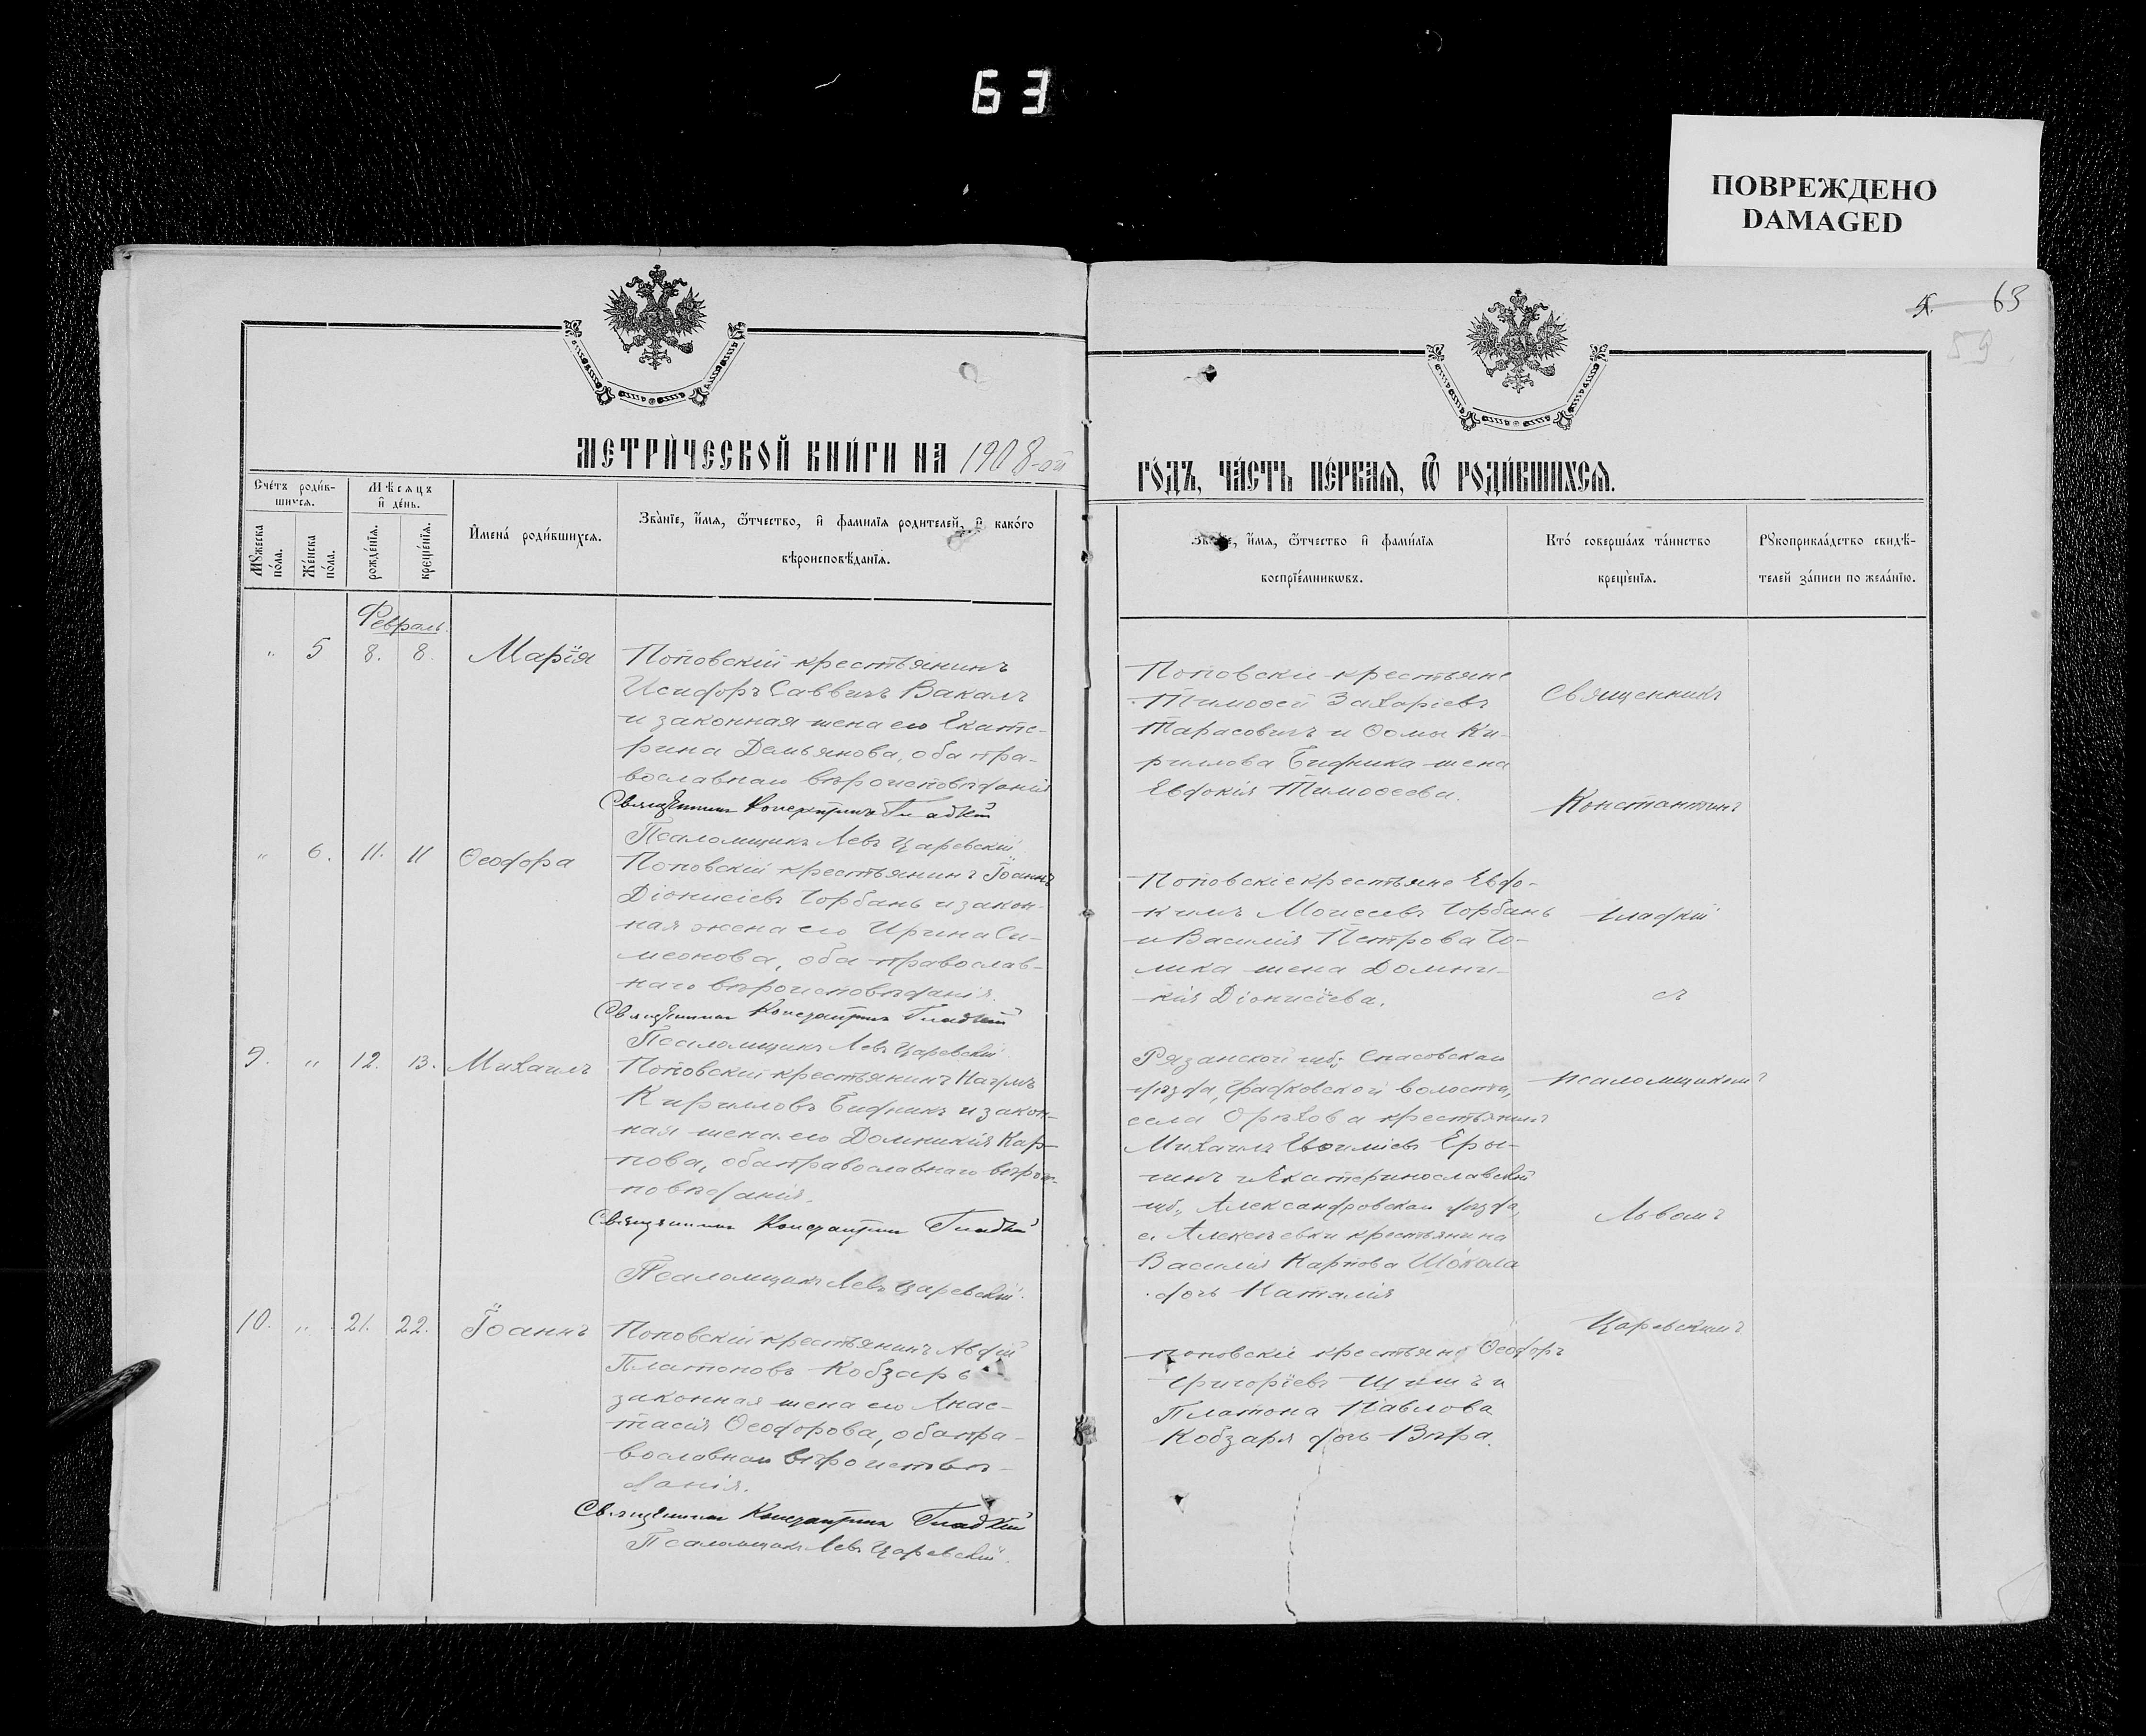 63
ПОВРЕЖДЕНО
DAMAGED
63
59
МЕТРИ́ЧЕСКОЙ КНИ́ГИ НА 1908-ой
ГО́ДЪ, ЧА́СТЬ ПЕ́РВАЯ, Ѽ РОДИ́ВШИХСЯ.
Сче́тъ роди́в-
шихся.
Мѣсяцъ
и҆ де́нь.
Мꙋжеска по́ла.
Же́нска по́ла.
рожде́нїя.
креще́нїя.
И҆мена̀ роди́вшихся.
Зва́нїе, и҆мя, ѻ҆тчество, и҆ фами́лїя роди́телей, и҆ како́го
вѣроисповѣ́данїя.
Зва́нїе, и҆мя, ѻ҆тчество и҆ фами́лїя
воспрїе́мникѡвъ.
Кто́ соверша́лъ та́инство
креще́нїя.
Рꙋкоприкла́дство свидѣ́-
телей за́писи по жела́нїю.
Февраль.
" 5 8. 8. Марія
Поповскій крестьянинъ
Исидоръ Саввинъ Вакалъ
и законная жена его Екате-
рина Демьянова, оба пра-
вославнаго вѣроисповѣданія
Священникъ Константинъ Гладкій
Псаломщикъ Левъ Царевскій
Поповскіе крестьяне
Тимоѳей Захаріевъ
Тарасовъ и Ѳомы Ки-
рилова Бидника жена
Евдокія Тимоѳеева.
Священникъ
Константинъ
" 6. 11. 11 Ѳеодора
Поповскій крестьянинъ Іоаннъ
Діонисіевъ Горбань и закон-
ная жена его Ирина Си-
меонова, оба православ-
наго вѣроисповѣданія.
Священникъ Константинъ Гладкій
Псаломщикъ Левъ Царевскій
Поповскіе крестьяне Евдо-
кимъ Моисеевъ Горбань
и Василія Петрова Го-
лика жена Домни-
кія Діонисіева.
Гладкій
съ
9. " 12. 13. Михаилъ
Поповскій крестьянинъ Наумъ
Кирилловъ Бидникъ и закон-
ная жена его Домникія Кар-
пова, оба православнаго вѣроис-
повѣданія.
Священникъ Константинъ Гладкій
Псаломщикъ Левъ Царевскій.
Рязанской губ., Спасовскаго
уѣзда, волости,
села Орѣхова крестьянинъ
Михаилъ Евѳиміевъ Еро-
шинъ и Екатеринославской
губ., Александровскаго уѣзда,
с. Алексѣевки крестьянина
Василія Карпова Шокола
дочь Наталія
псаломщикомъ
Львомъ
Царевскимъ
10. " 21. 22. Іоаннъ
Поповскій крестьянинъ Авдій
Платоновъ Кобзарь
законная жена его Анас-
тасія Ѳеодорова, оба пра-
вославнаго вѣроисповѣ-
данія.
Священникъ Константинъ Гладкій
Псаломщикъ Левъ Царевскій.
Поповскіе крестьяне Ѳеодоръ
Григоріевъ и
Платона Павлова
Кобзаря дочь Вѣра.